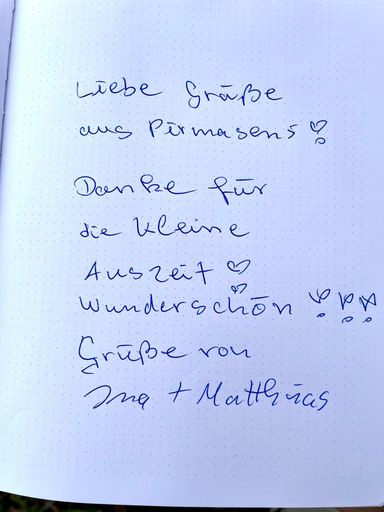 Liebe Grüße
aus Pirmasens!
Danke für
die kleine
Auszeit ♡
Wunderschön!!!
Grüße von
Ina + Matthias